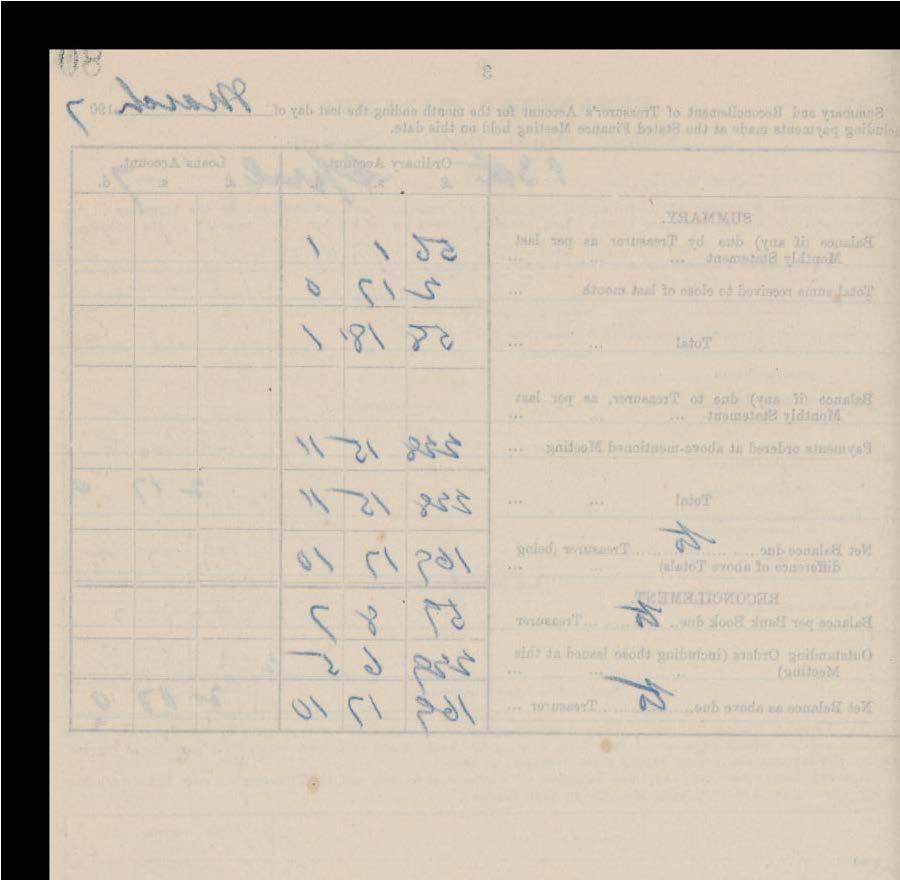 3
Summary and Reconcilement of Treasurer's Account for the month ending the last day of March 1907
including payments made at the Stated Finance Meeting held on this date.
Ordinary Account. Loans Account.
£ s. d. £ s. d.
SUMMARY.
Balance (if any) due by Treasurer as per last
Monthly Statement ... ... ... 1 1
Total sums received to close of last month ... 17 0
Total ... ... 18 1
Balance (if any) due to Treasurer, as per last
Monthly Statement ... ... ...
Payments ordered at above-mentioned Meeting ... 228 15 11
Total ... ... 228 15 11
Net Balance due Treasurer (being
difference of above Totals) ... ... 169 17 10
RECONCILEMENT
Balance per Bank Book due Treasurer 8 7
Outstanding Orders (including those issued at this
Meeting) ... ... ... 6 5
Net Balance as above due Treasurer ... 169 17 10